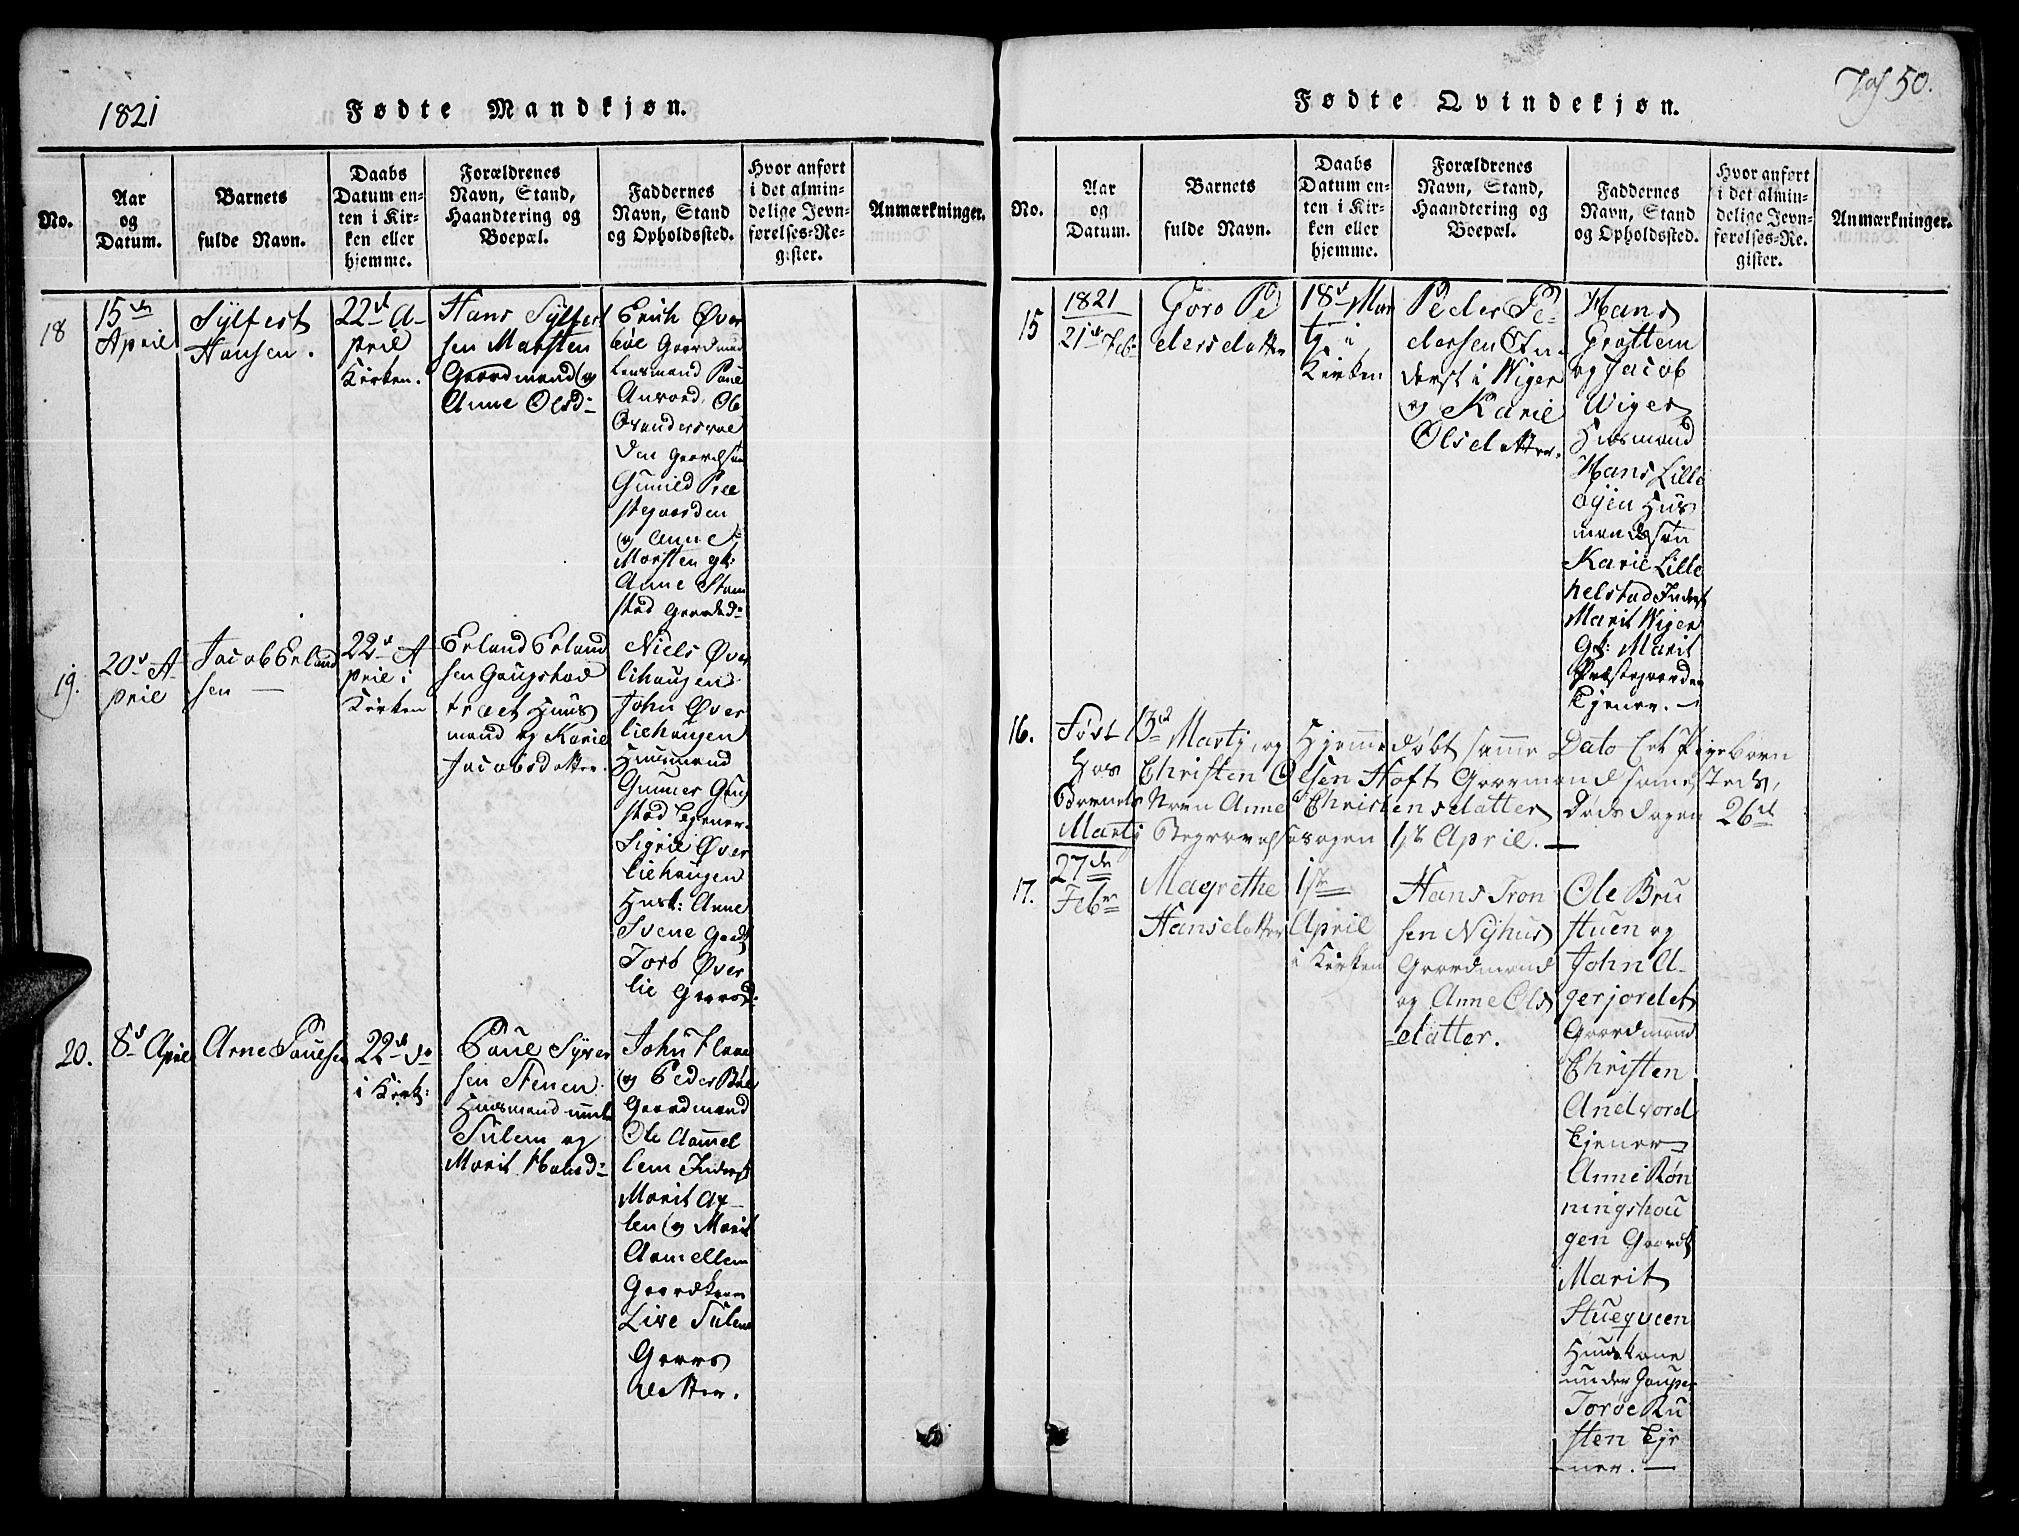 1821
Fødte Mandkjøn.
No.
Aar
og
Datum.
Barnets
fulde Navn.
Daabs
Datum en-
ten i Kir-
ken eller
hjemme.
Forældrenes
Navn, Stand,
Haandtering og
Boepæl.
Faddernes
Navn, Stand
og Opholdssted.
Hvor anført
i det almin-
delige Jevn-
førelses-Re-
gister.
Anmærkninger.
18
15de
April
Sylfest
Hansen.
22d A-
pril
Kirken.
Hans Sylfest
sen Marsten
Gaardmand og
Anne Olsd:
Erich Øver
Gaardmand
Lensmand Poul
Gunild Præ
stegaarden
og Anne
Marsten gk:
Anne Stam
stad Gaardsd:
19.
20d A
pril
Jacob Erland
sen
22d A
pril i
Kirken
Erland Erland
sen Gaugstad
træet Huus
mand og Karie
Jacobsdatter.
Niels Øver
liehaugen
John Øver
liehaugen
Huusmænd
Gunner Gaug
stad Tjener.
Sigrie Øver
liehaugen
Husk: Anne
Svene Gaardk
Torø Øver
lie Gaardsd:
20.
8d April
Arne Poulsen
22d do
i Kirk:
Poul Syver
sen Stenen
Huusmand under
Sulem og
Marit Hansd:
John
og Peder Bøe
Gaardmænd
Ole Aamel
lem Inderst
Marit
len og Marit
Aamellem
Gaardkoner
Live Sulem
Gaards
datter.
50.
Fødte Qvindekjøn.
No.
Aar
og
Datum.
Barnets
fulde Navn.
Daabs
Datum en-
ten i Kir-
ken eller
hjemme.
Forældrenes
Navn, Stand,
Haandtering og
Boepæl.
Faddernes
Navn, Stand
og Opholdssted.
Hvor anført
i det almin-
delige Jevn-
førelses-Re-
gister.
Anmærkninger.
15
1821
21de Feb:
Goro Pe
dersdatter
18d Mar
tj i
Kirken
Peder Pe-
dersen In-
derst i Wiger
og Karie
Olsdatter.
Hans
Grottem
og Jacob
Wiger
Husmænd
Hans Lille
øyen Hus
mandssøn
Karie Lille
helstad Inderst
Marit Wiger
Gk: Marit
Præstegaarden
Tjener.
16.
Født 13d Martj, og Hjemmedøbt samme Dato Et Pigebarn
Hos Christen Olsen Hoft Gaarmand samesteds,
Barnets Navn Anne Christensdatter Dødsdagen 26d
Martj Begravelsesdagen 1ste April.
17.
27de
Febr
Magrethe
Hansdatter
1ste
April
i Kirken
Hans Tron
sen Nyhus
Gaardmand
og Anne Ols
datter.
Ole Bru
stuen og
John A-
gerjordet
Gaardmænd
Christen
Andvord
Tjener
Anne Røn
ningshou
gen Gaardk
Marit
Stueqveen
Huuskone
under Gaupar
Torøe Ru
sten Tje
ner.